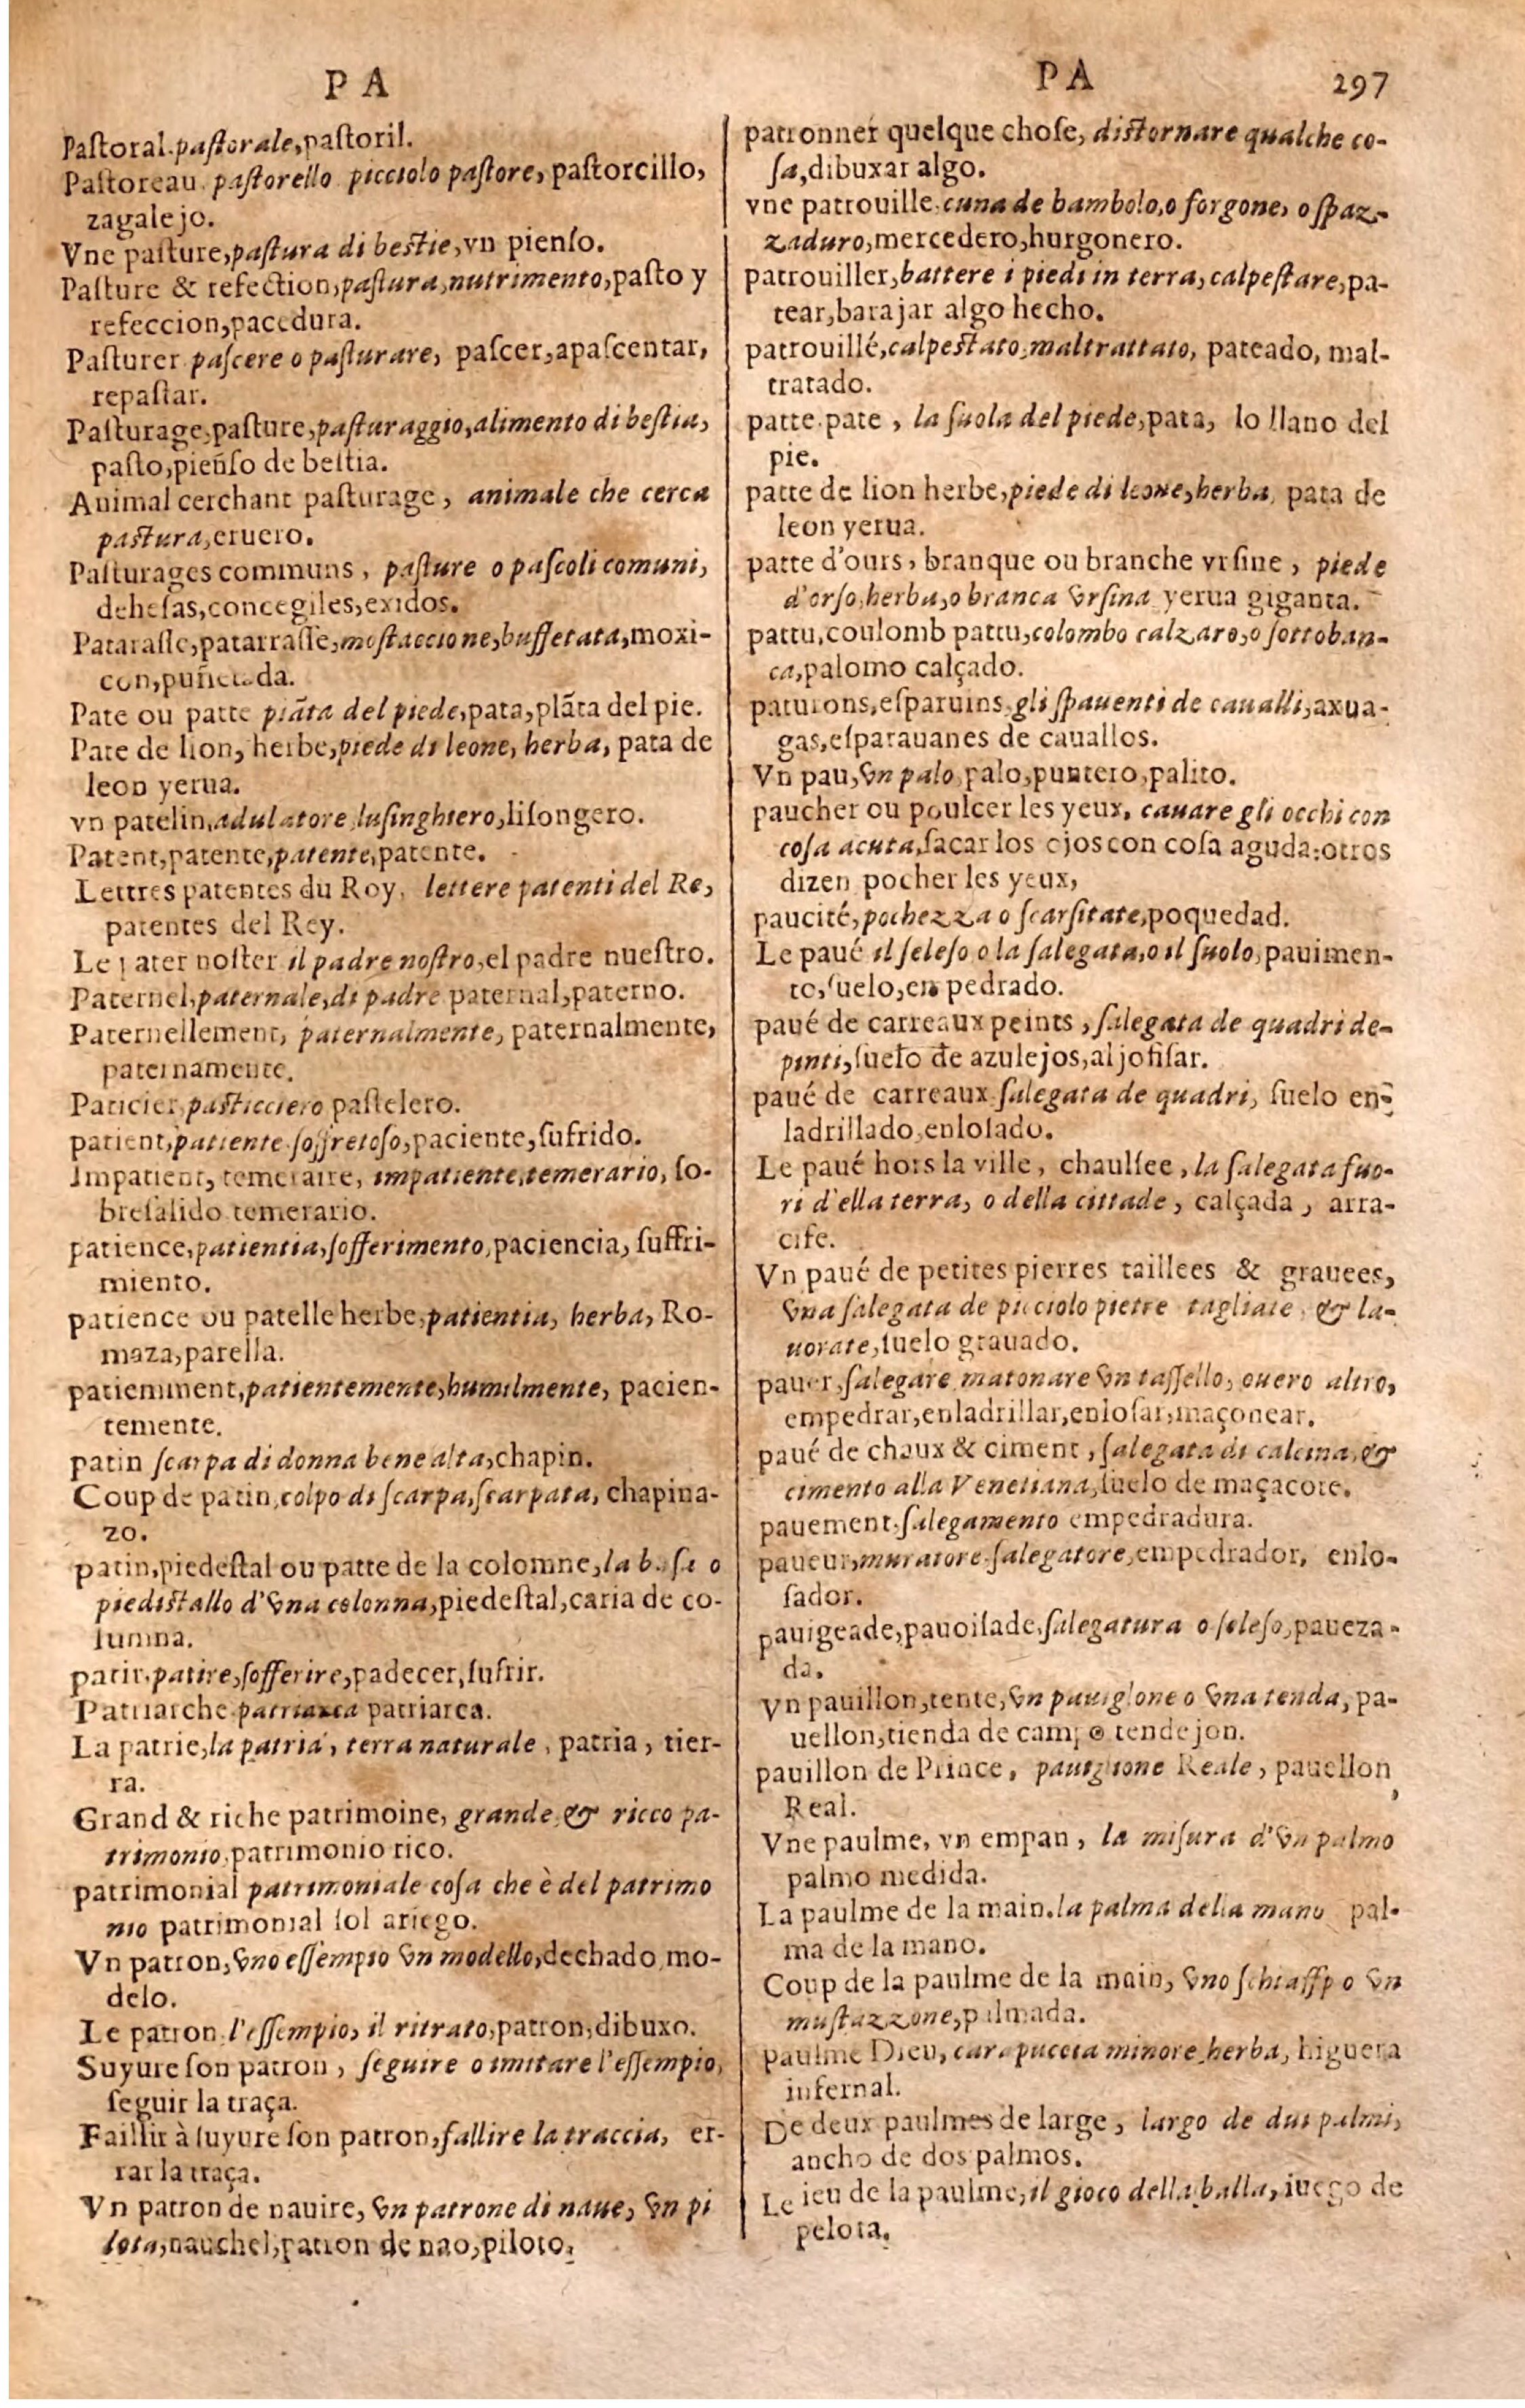 PA
Pastoral. pastorale, pastoril.
Pastoreau. pastorello. picciolo pastore, pastorcillo,
zagalejo.
Vne pasture, pastura di bestie, vn pienso.
Pasture & refection, pastura, nutrimento, pasto y
refeccion, pacedura.
Pasturer. pascere o pasturare, pascer, apascentar,
repastar.
Pasturage, pasture, pasturaggio, alimento di bestia,
pasto, pieñso de bestia.
Animal cerchant pasturage, animale che cerca
pastura, eruero.
Pasturages communs, pasture o pascoli comuni,
dehesas, concegiles, exidos.
Patarasse, patarrasse, mostaccione, buffetata, moxi-
con, puñetada.
Pate ou patte piãta del piede, pata, plãta del pie.
Pate de lion, herbe, piede di leone, herba, pata de
leon yerua.
vn patelin, adulatore, lusinghiero, lisongero.
Patent, patente, patente, patente.
Lettres patentes du Roy, lettere patenti del Re,
patentes del Rey.
Le pater noster il padre nostro, el padre nuestro.
Paternel, paternale, di padre paternal, paterno.
Paternellement, paternalmente, paternalmente,
paternamente.
Paticier, pasticciero pastelero.
patient, patiente. soffretoso, paciente, sufrido.
Impatient, temeraire, impatiente, temerario, so-
bresalido temerario.
patience, patientia, sofferimento, paciencia, suffri-
miento.
patience ou patelle herbe, patientia, herba, Ro-
maza, parella.
patiemment, patientemente, humilmente, pacien-
temente.
patin scarpa di donna bene alta, chapin.
Coup de patin, colpo di scarpa, scarpata, chapina-
zo.
patin, piedestal ou patte de la colomne, la basa o
piedistallo d'vna colonna, piedestal, caria de co-
lumna.
patir. patire, sofferire, padecer, sufrir.
Patriarche. patriarca patriarca.
La patrie, la patria, terra naturale, patria, tier-
ra.
Grand & riche patrimoine, grande, & ricco pa-
trimonio, patrimonio rico.
patrimonial patrimoniale cosa che è del patrimo
nio patrimonial sol ariego.
Vn patron, vno essempio vn modello, dechado, mo-
delo.
Le patron. l'essempio, il ritrato, patron, dibuxo.
Suyure son patron, seguire o imitare l'essempio,
seguir la traça.
Faillir à suyure son patron, fallire la traccia, er-
rar la traça.
Vn patron de nauire, vn patrone di naue, vn pi
lota, nauchel, patron de nao, piloto.
PA 297
patronner quelque chose, distornare qualche co-
sa, dibuxar algo.
vne patrouille. cuna de bambolo, o forgone, o spaz-
zaduro, mercedero, hurgonero.
patrouiller, battere i piedi in terra, calpestare, pa-
tear, barajar algo hecho.
patrouillé, calpestato, maltrattato, pateado, mal-
tratado.
patte. pate, la suola del piede, pata, lo llano del
pie.
patte de lion herbe, piede di leone, herba, pata de
leon yerua.
patte d'ours, branque ou branche vrsine, piede
d'orso, herba, o branca vrsina yerua giganta.
pattu, coulomb pattu, colombo calzaro, o sottoban-
ca, palomo calçado.
paturons, esparuins, gli spauenti de caualli, axua-
gas, esparauanes de cauallos.
Vn pau, vn palo, palo, puntero, palito.
paucher ou poulcer les yeux. cauare gli occhi con
cosa acuta, sacar los ojos con cosa aguda: otros
dizen pocher les yeux,
paucité, pochezza o scarsitate, poquedad.
Le paué il seleso o la salegata, o il suolo, pauimen-
to, suelo, en pedrado.
paué de carreaux peints, salegata de quadri de-
pinti, suelo de azulejos, aljofisar.
paué de carreaux. salegata de quadri, suelo en-
ladrillado, enlosado.
Le paué hors la ville, chaulsee, la salegata fuo-
ri d'ella terra, o della cittade, calçada, arra-
cife.
Vn paué de petites pierres taillees & grauees,
vna salegata de picciolo pietre tagliate, & la-
uorate, suelo grauado.
pauer, salegare, matonare vn tassello, ouero altro,
empedrar, enladrillar, enlosar, maçonear.
paué de chaux & ciment, salegata di calcina, &
cimento alla Venetiana, suelo de maçacote.
pauement. salegamento empedradura.
paueur, muratore. salegatore, empedrador, enlo-
sador.
pauigeade, pauoisade, salegatura o seleso, paueza-
da.
Vn pauillon, tente, vn pauiglone o vna tenda, pa-
uellon, tienda de campo tendejon.
pauillon de Prince, pauiglione Reale, pauellon,
Real.
Vne paulme, vn empan, la misura d'vn palmo
palmo medida.
La paulme de la main. la palma della mano pal-
ma de la mano.
Coup de la paulme de la main, vno schiaffo o vn
mustazzone, palmada.
paulme Dieu, carapuccia minore, herba, higuera
infernal.
De deux paulmes de large, largo de dui palmi,
ancho de dos palmos.
Le ieu de la paulme, il gioco della balla, iuego de
pelota.